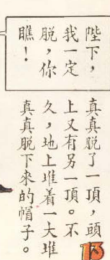 陛下，
我一定
脱，你
瞧！
真真脱了一頂，頭
上又有另一頂。不
久，地上堆着一大堆
真真脱下來的帽子。